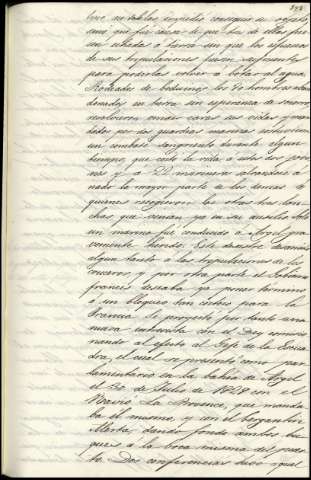 tivo no habla impedido conseguir su objeto,
sino que fué causa de que dos de ellas fue-
ran echadas á tierra sin que los esfuerzos
de sus tripulaciones fuesen suficientes
para poderlas volver á botar al agua.
Rodeados de beduinos los 80 hombres aban-
donados en tierra sin esperanza de socorro
resolvieron vender caras sus vidas y man-
dados por dos guardias marinas sostuvieron
un combate sangriento durante algun
tiempo, que costó la vida á estos dos jove-
nes y á 22 marineros salvandose á
nado la mayor parte de los demas á
quienes recogieron las otras tres lan-
chas que venian ya en su auxilio. Solo
un marino fué conducido á Argel gra-
vemente herido. Este desastre desanimó
algun tanto á las tripulaciones de los
cruceros, y por otra parte el Gobierno
francés deseaba ya poner termino
á un bloqueo tan costoso para la
Francia. Se proyectó por tanto una
nueva entrevista con el Dey comisio-
nando al efecto al Gefe de la Escua-
dra, el cual se presentó como par-
lamentario en la bahia de Argel
el 30 de Julio de 1829 con el
Navio La Provence, que manda-
ba el mismo, y con el bergantin
Alerta, dando fondo ambos bu-
ques á la boca misma del puer-
to. Dos conferencias tuvo igual